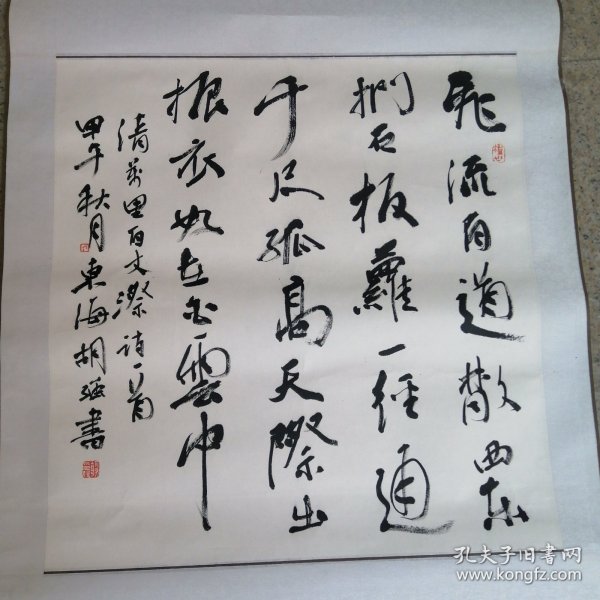 飛流百道散西东
捫石扳蘿一径通
千尺孤高天際出
振衣如在白雲中
清萬里百丈漈詩一首
甲午秋月東海胡強書
孔夫子旧書网
www.kongfz.com